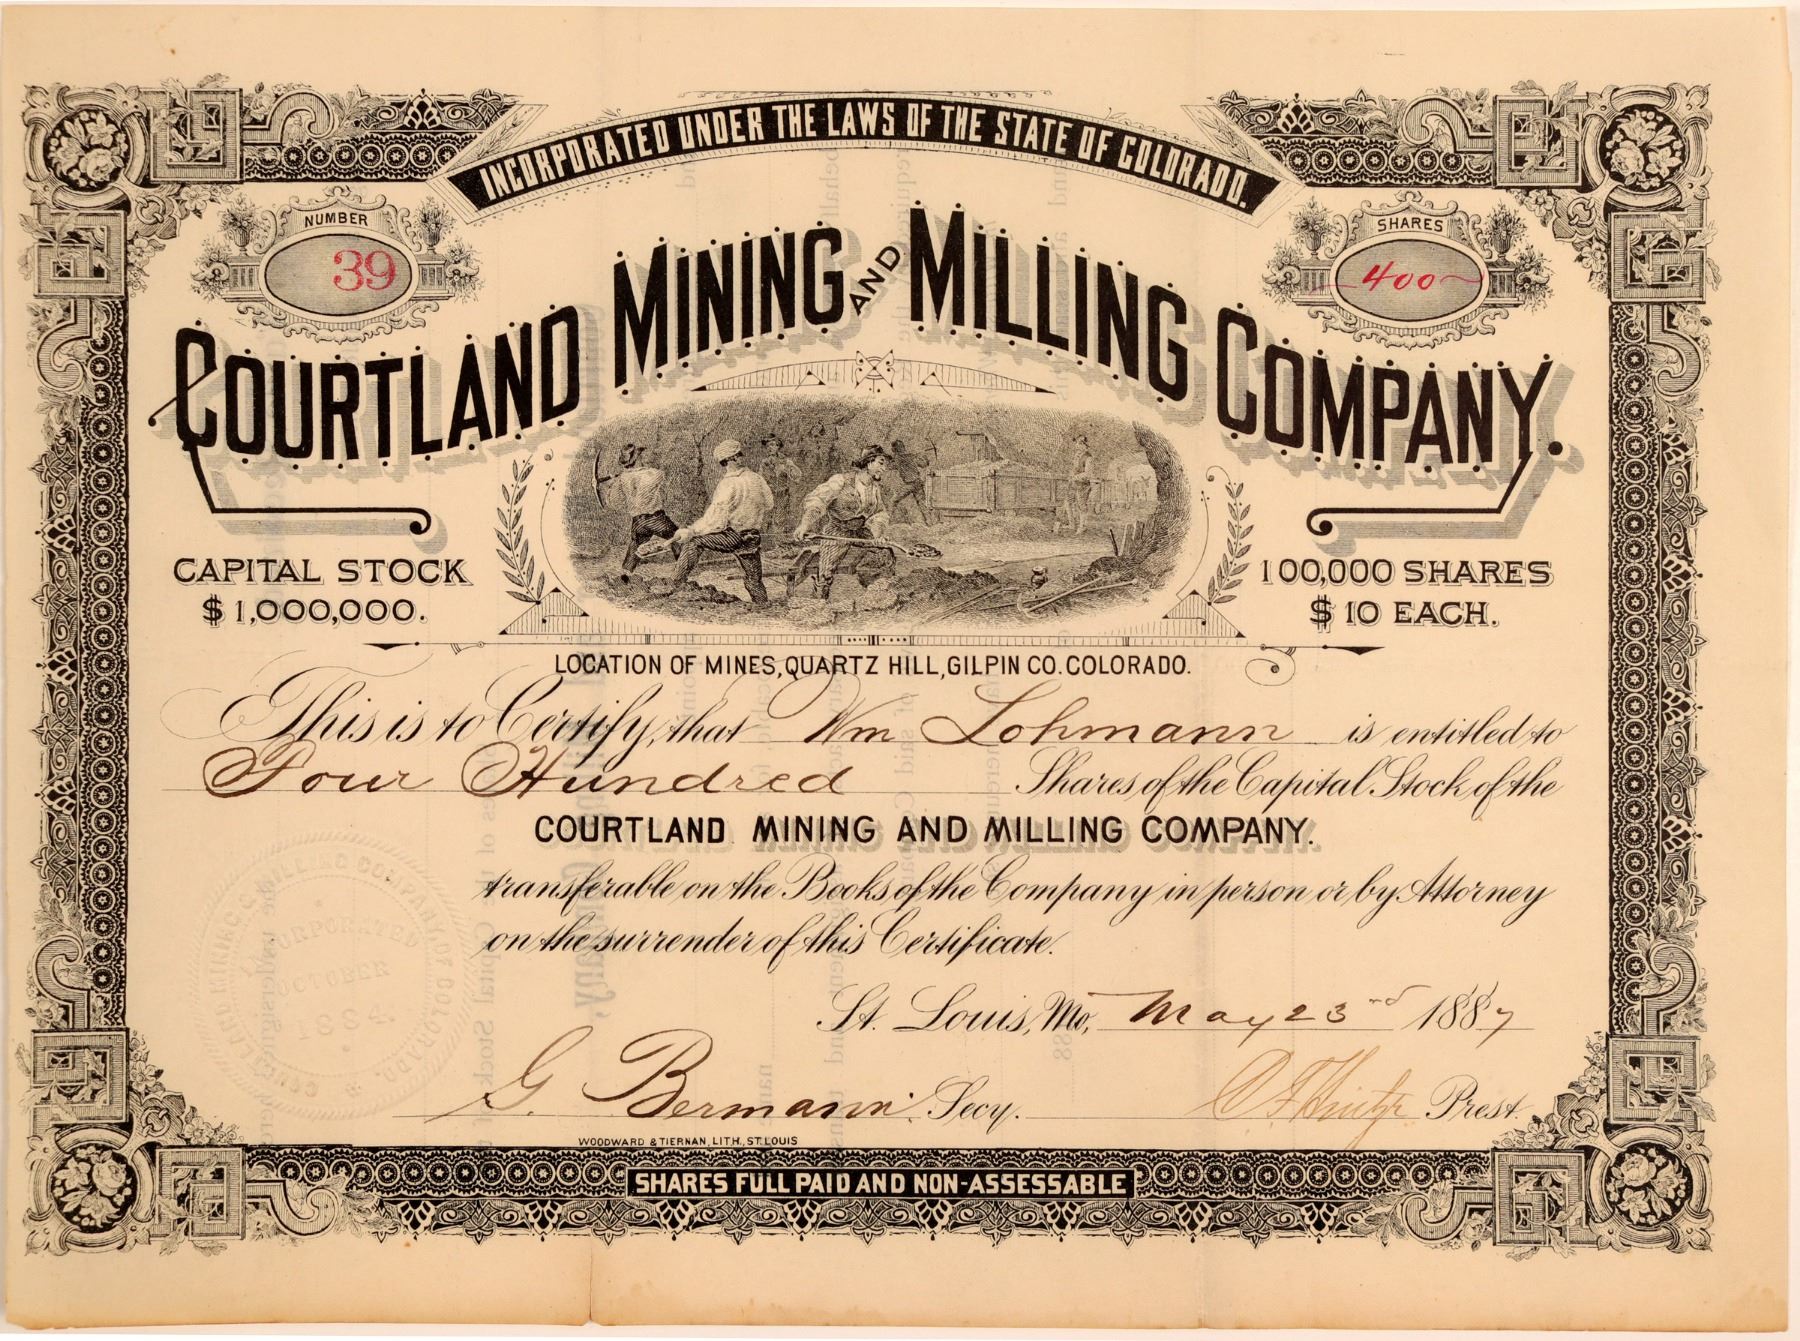 INCORPORATED UNDER THE LAWS OF THE STATE OF COLORADO.
NUMBER
39
SHARES
400
COURTLAND MINING AND MILLING COMPANY.
CAPITAL STOCK
$1,000,000.
100,000 SHARES
$10 EACH.
LOCATION OF MINES, QUARTZ HILL, GILPIN CO. COLORADO.
This is to Certify, that Wm Lohmann is entitled to
Four Hundred Shares of the Capital Stock of the
COURTLAND MINING AND MILLING COMPANY.
transferable on the Books of the Company in person or by Attorney
on the surrender of this Certificate.
St. Louis, Mo, May 23rd 1887
G. Bermann Secy.
Prest.
COURTLAND MINING & MILLING COMPANY OF COLORADO.
INCORPORATED
OCTOBER
1884.
WOODWARD & TIERNAN, LITH., ST. LOUIS
SHARES FULL PAID AND NON-ASSESSABLE